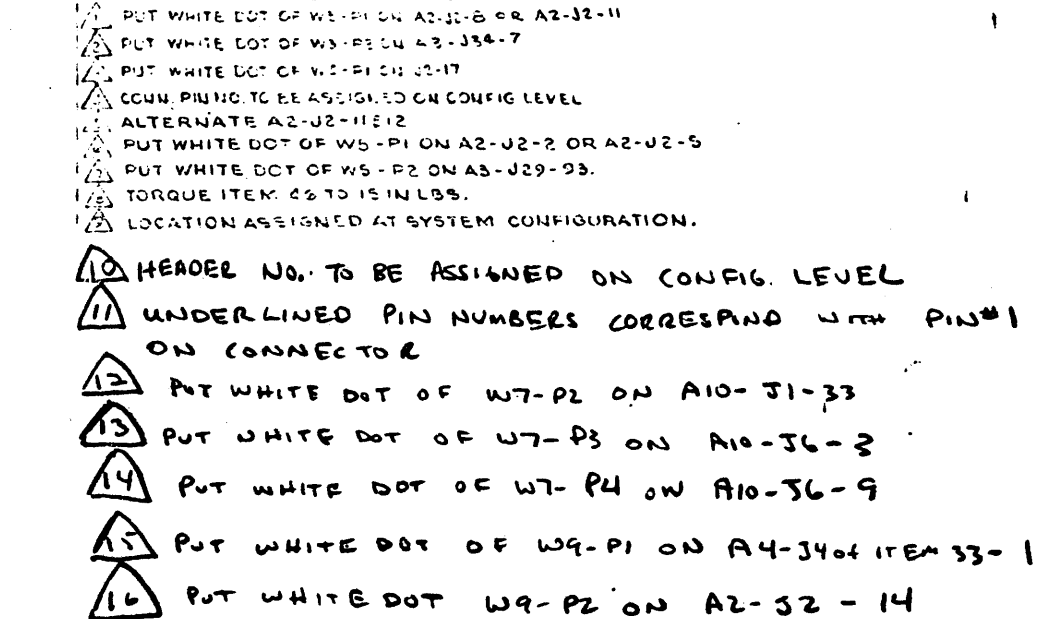 PUT WHITE DOT OF W3-P1 ON A2-J2-8 OR A2-J2-11
PUT WHITE DOT OF W3-P2 ON A3-J34-7
PUT WHITE DOT OF P1 ON J2-17
4 CONN. PIN NO. TO BE ASSIGNED ON CONFIG LEVEL
ALTERNATE A2-J2-11 12
6 PUT WHITE DOT OF W5-P1 ON A2-J2-2 OR A2-J2-5
7 PUT WHITE DOT OF W5-P2 ON A3-J29-
8 TORQUE ITEM TO 15 IN LBS.
9 LOCATION ASSIGNED AT SYSTEM CONFIGURATION.
10 HEADER NO. TO BE ASSIGNED ON CONFIG. LEVEL
11 UNDERLINED PIN NUMBERS CORRESPIND WITH PIN#1
ON CONNECTOR
12 PUT WHITE DOT OF W7-P2 ON A10-J1-33
13 PUT WHITE DOT OF W7-P3 ON A10-J6-3
14 PUT WHITE DOT OF W7-P4 ON A10-J6-9
15 PUT WHITE DOT OF W9-P1 ON A4-J4 of ITEM 33-1
16 PUT WHITE DOT W9-P2 ON A2-J2-14